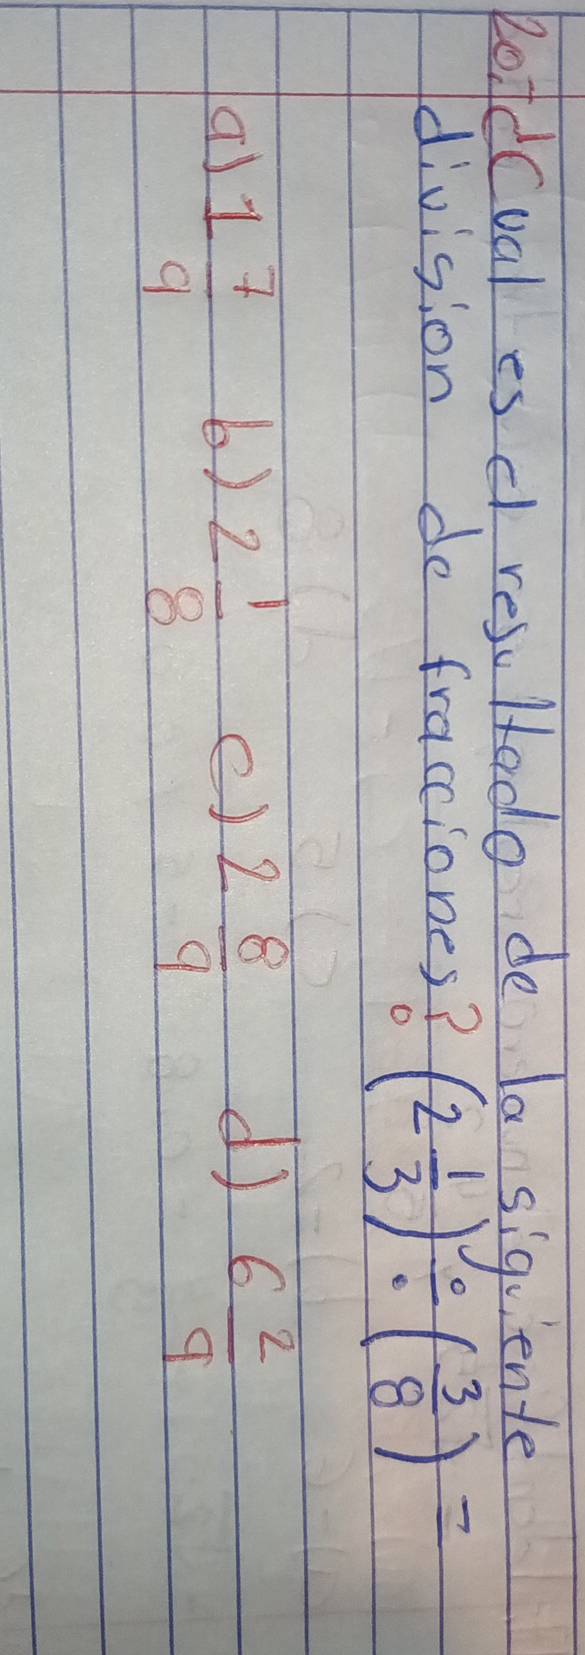 20.- ¿Cual es el resultado de la siguiente
division de fracciones? (2 1/3) ÷ (3/8) =
a) 1 7/9 b) 2 1/8 c) 2 8/9 d) 6 2/9